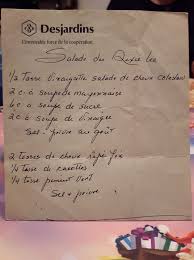 Desjardins
L'incroyable force de la coopération.
Salade du
1/2 tasse vinaigrette salade de choux coleslaw
2 c. à soupe de mayonnaise
6 c à soupe de sucre
2 c. à soupe de vinaigre
Sel - poivre au goût
2 tasses de choux rapé fin
1/4 tasse de carottes
1/4 tasse piment vert
Sel + poivre